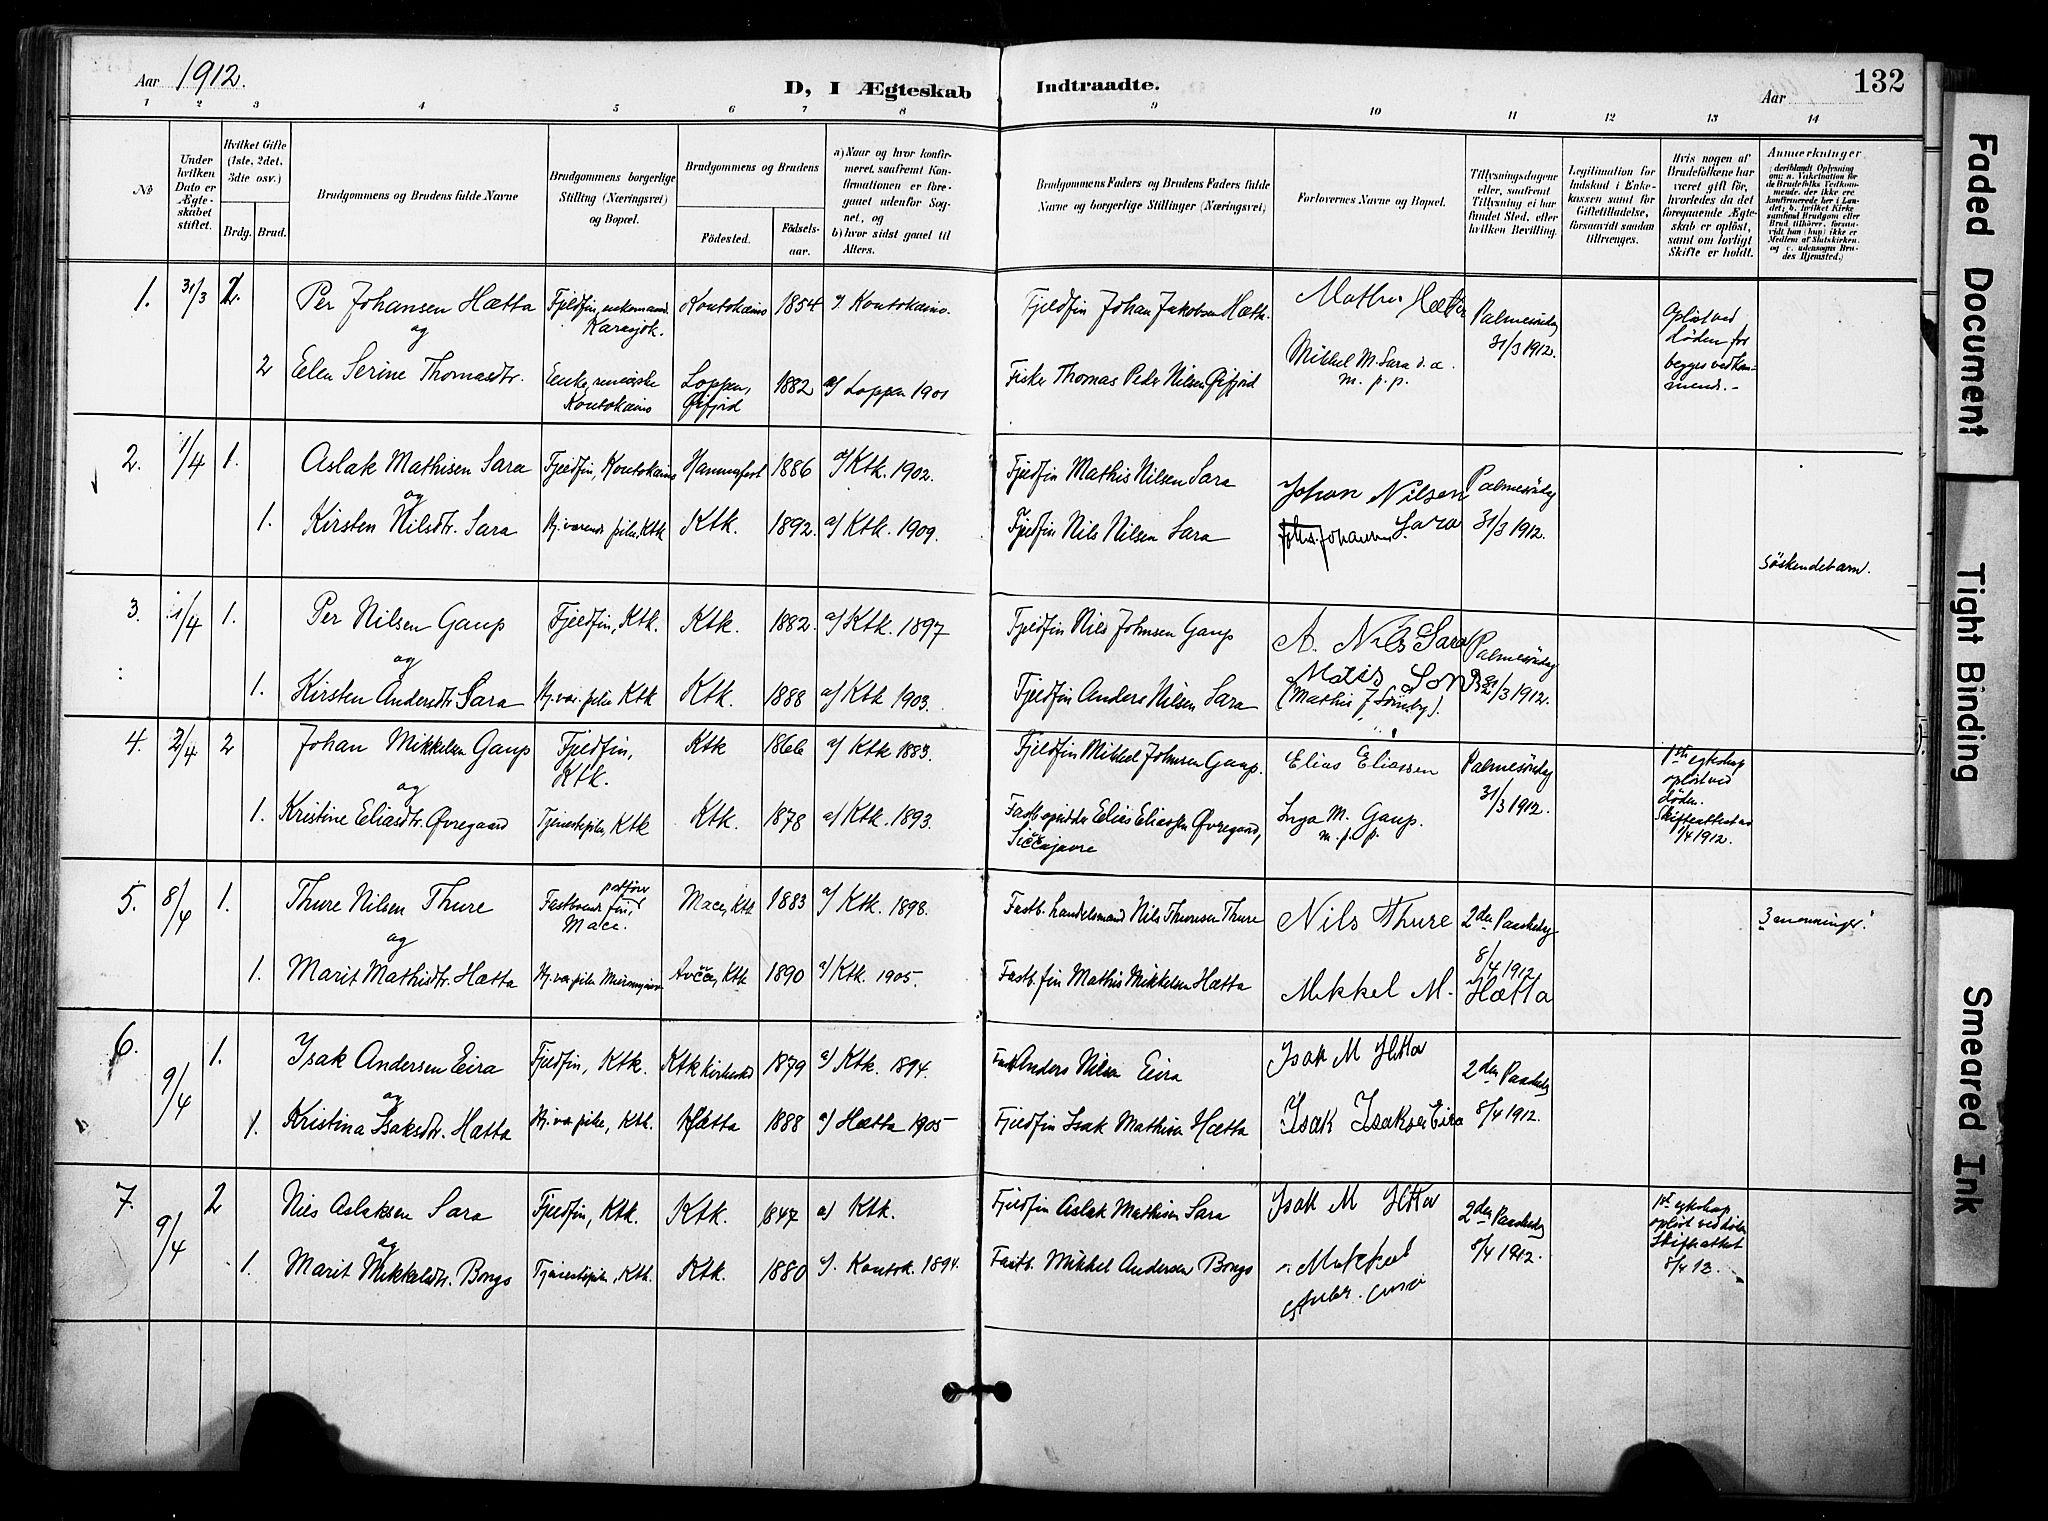 Aar 1912.
D, I Ægteskab Indtraadte.
Aar
132
1 2 3 4 5 6 7 8 9 10 11 12 13 14
No
Under hvilken Dato er Ægteskabet stiftet.
Hvilket Gifte (1ste, 2det, 3die osv.)
Brdg. Brud.
Brudgommens og Brudens fulde Navne
Brudgommens borgerlige Stilling (Næringsvei) og Bopæl.
Brudgommens og Brudens
Fødested.
Fødselsaar.
a) Naar og hvor konfirmeret, saafremt Konfirmationen er foregaaet udenfor Sognet, og
b) hvor sidst gaaet til Alters.
Brudgommens Faders og Brudens Faders fulde Navne og borgerlige Stillinger (Næringsvei)
Forlovernes Navne og Bopæl.
Tillysningsdagene eller, saafremt Tillysning ei har fundet Sted, efter hvilken Bevilling.
Legitimation for Indskud i Enkekassen samt for Giftetilladelse, forsaavidt saadan tiltrænges.
Hvis nogen af Brudefolkene har været gift før, hvorledes da det foregaaende Ægteskab er opløst, samt om lovligt Skifte er holdt.
Anmerkninger
(deriblandt Oplysning om: a. Vakcination for de Brudefolks Vedkommende, der ikke ere konfirmerede her i Landet; b. hvilket Kirkesamfund Brudgom eller Brud tilhører, forsaavidt han (hun) ikke er Medlem af Statskirken, og c. udensogns Brudes Hjemsted.)
1. 31/3 2. Per Johansen Hætta Fjeldfin, enkemand. Karasjok. Koutokeino 1854 a/ Koutokeino. Fjeldfin Johan Jakobsen Hætta. Mathis Hætta Palmesöndag 31/3 1912. Opløst ved døden for begges vedkommende.-
og
2 Elen Serine Thomasdtr. Enke, Koutokeino Loppen, Øifjord 1882 a/ Loppen 1901 Fisker Thomas Peder Nilsen Øifjord Mikkel M. Sara d.æ. m. p. p.
2. 1/4 1. Aslak Mathisen Sara Fjeldfin, Koutokeino Hammerfest 1886 a/ Ktk. 1902. Fjeldfin Mathis Nilsen Sara Johan Nilsen Sara Palmesöndag 31/3 1912.
og
1. Kirsten Nilsdtr. Sara Hj. værende pike, Ktk Ktk. 1892. a/ Ktk. 1909. Fjeldfin Nils Nilsen Sara Johs. Johannsen söskendebarn.
3. 1/4 1. Per Nilsen Gaup Fjeldfin, Ktk. Ktk. 1882. a/ Ktk. 1897 Fjeldfin Nils Johnsen Gaup A. Nils Sara Palmesöndag 31/3 1912.
og
1. Kirsten Andersdtr Sara Hj. vær. pike Ktk Ktk. 1888 a/ Ktk 1903. Fjeldfin Anders Nilsen Sara Matis
(Mathis J Somby).
4. 2/4 2 Johan Mikkelsen Gaup Fjeldfin, Ktk. Ktk 1866 a/ Ktk 1883. Fjeldfin Mikkel Johnsen Gaup. Elias Eliassen Palmesöndag 31/3 1912. 1ste egteskap opløst ved döden. Skifteattest av 1/4 1912.
og
1. Kristine Eliasdtr. Øvregaard Tjenestepike, Ktk Ktk. 1878 a/ Ktk. 1893. Fastb. opsidder Elias Eliassen Øvregaard, Siččajavre Inga M. Gaup. m. p. p.
5. 8/4 1. Thure Nilsen Thure Fastboende fin, postfører Maci. Maci, Ktk 1883 a/ Ktk. 1898. Fastb. handelsmand Nils Thuresen Thure Nils Thure 2den Paaskedag 8/4 1912 3 menninger!
og
1. Marit Mathisdtr. Hætta Hj. vær. pike Avčče, Ktk 1890 a/ Ktk. 1905. Fastb. fin Mathis Mikkelsen Hætta Mikkel M. Hætta
6. 9/4 1. Isak Andersen Eira Fjeldfin, Ktk. Ktk Kirkested 1879 a/ Ktk. 1894. Anders Nilsen Eira Isak M Hætta 2den Paaskedag 8/4 1912.
og
1. Kristina Isaksdtr. Hætta Hj. vær. pike, Ktk. Hætta 1888 a/ Hætta 1905 Fjeldfin Isak Mathisen Hætta Isak Isaksen Eira
7. 9/4 2 Nils Aslaksen Sara Fjeldfin, Ktk. Ktk. 1847 a) Ktk. Fjeldfin Aslak Mathisen Sara Isak M Hætta 2den Paaskedag 8/4 1912. 1ste egteskap opløst ved döden Skifteattest 8/4 12.
og
1. Marit Mikkelsdtr. Bongo Tjenestepike, Ktk. Ktk. 1880 a/. Koutok. 1894. Fastb. Mikkel Andersen Bongo Mikkel
Faded Document
Tight Binding
Smeared Ink